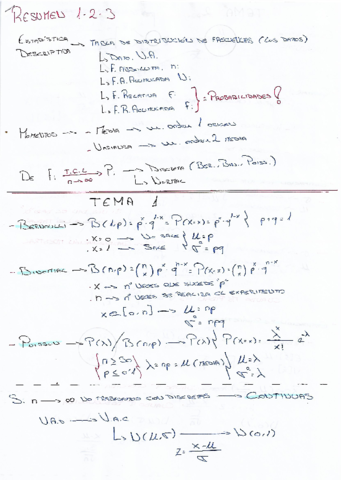 RESUMEN 1-2-3
ESTADÍSTICA DESCRIPTIVA → TABLA DE DISTRIBUCIÓN DE FRECUENCIAS (LOS DATOS)
↳ DATO, V.A.
↳ F. ABSOLUTA, ni
↳ F.A. ACUMULADA Ni
↳ F. RELATIVA fi
↳ F.R. ACUMULADA Fi } = PROBABILIDADES!
• MOMENTOS → - MEDIA → m. ORDEN 1 ORIGEN
- VARIANZA → m. ORDEN 2 MEDIA
DE Fi T.C.L. n→∞ → P. → DISCRETA (BER., BIN., POISS.)
↳ NORMAL
TEMA 1
- BERNOULLI → B(1,p) = p^x · q^(1-x) = P(X=x) = p^x · q^(1-x) } p+q=1
· X=0 → NO SALE } μ=p
· X=1 → SALE } σ²=pq
- BINOMIAL → B(n,p) = (n x) p^x q^(n-x) = P(X=x) = (n x) p^x · q^(n-x)
· x → nº VECES QUE SUCEDE "p"
· n → nº VECES SE REALIZA EL EXPERIMENTO
x ∈ [0-n] → μ = np
σ² = npq
- POISSON → P(λ) / B(n,p) → P(λ) } P(X=x) = λ^x / x! · e^-λ
{ n ≥ 30 p ≤ 0'1 } λ = np = μ (MEDIA) } μ=λ σ²=λ
Si n → ∞ NO TRABAJAMOS CON DISCRETAS → CONTINUAS
V.A.D → V.A.C
↳ N(μ,σ) → N(0,1)
Z = x-μ / σ